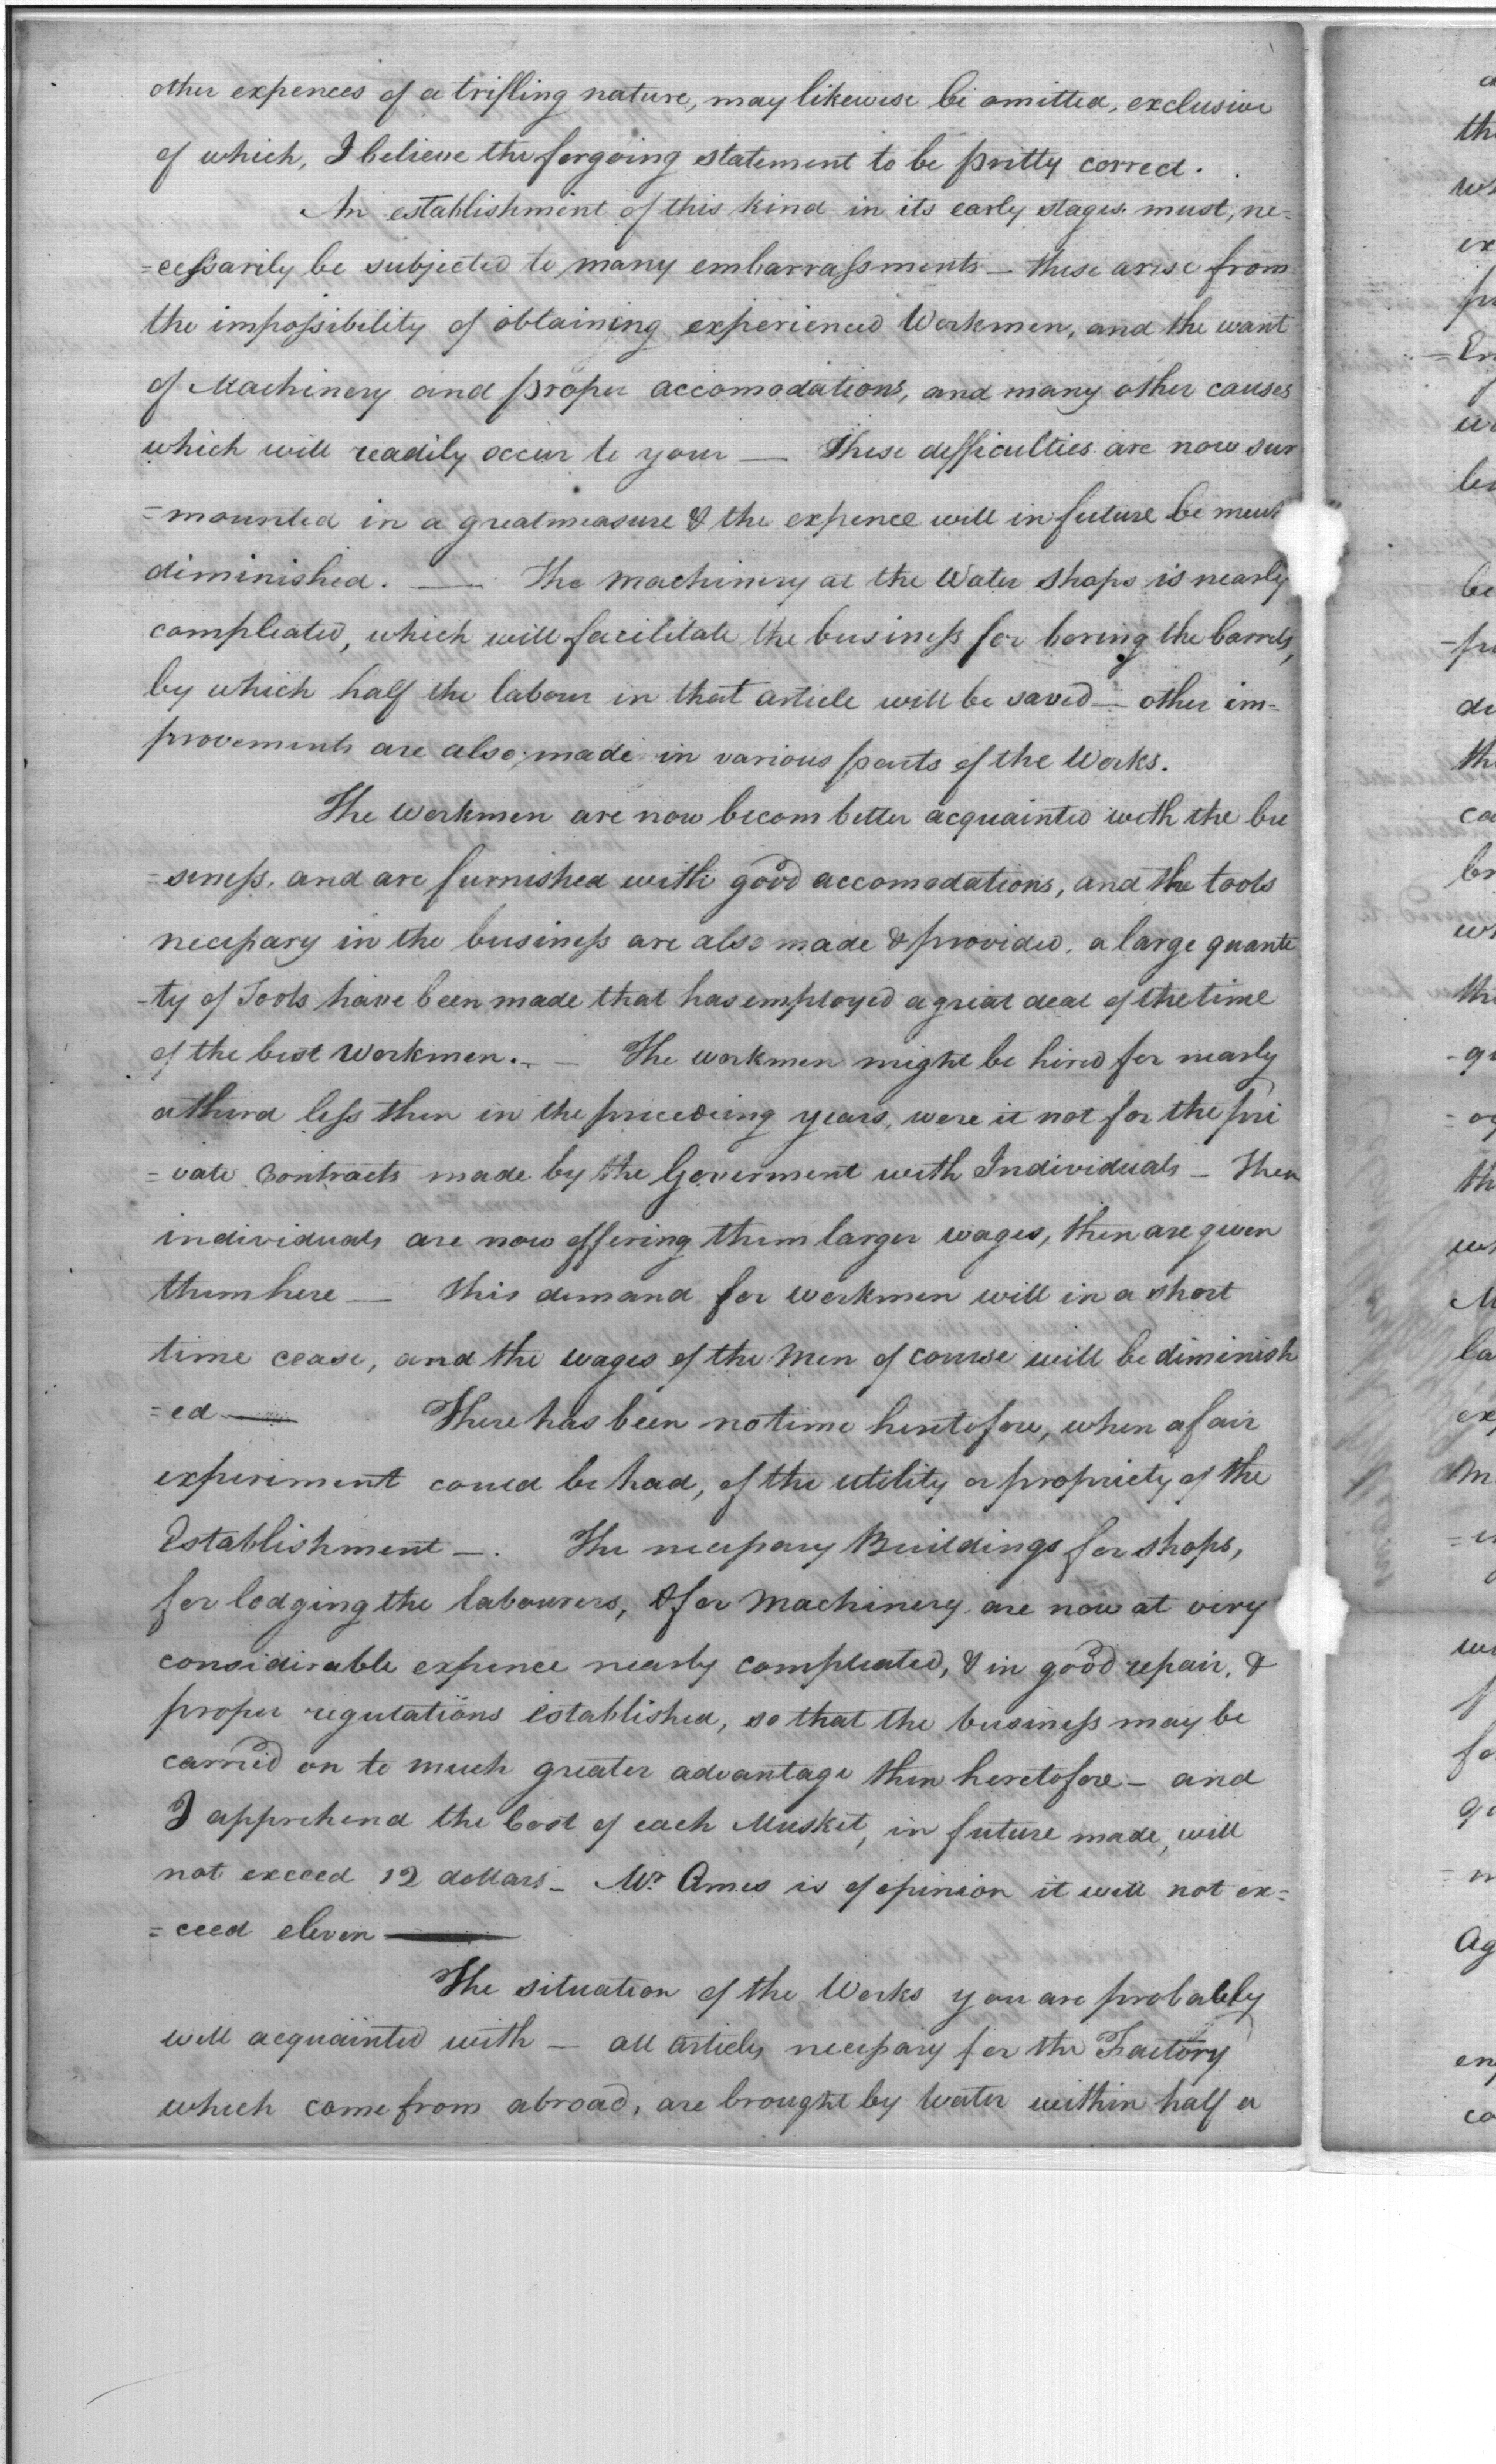 other expences of a trifling nature, may likewise be omitted, exclusive
of which, I believe the forgoing statement to be pritty correct.
An establishment of this kind in its early stages must, ne=
=cessarily be subjected to many embarrassments — these arise from
the impossibility of obtaining experienced Workmen, and the want
of Machinery and proper accomodations, and many other causes
which will readily occur to your — These difficulties are now sur
=mounted in a great measure & the expence will in future be much
diminished. — The machinery at the Water shops is nearly
compleated, which will facilitate the business for boring the barrels,
by which half the labour in that article will be saved — other im=
provements are also made in various parts of the Works.
The workmen are now becom better acquainted with the bu
=siness, and are furnished with good accomodations, and the tools
necessary in the business are also made & provided, a large quanti
-ty of Tools have been made that has employed a great deal of the time
of the best Workmen. — The workmen might be hired for nearly
a third less then in the preceding years, were it not for the pri
=vate Contracts made by the Goverment with Individuals — These
individuals are now offering them larger wages, then are given
them here — this demand for workmen will in a short
time cease, and the wages of the men of course will be diminish
=ed — There has been no time heretofore, when a fair
experiment could be had, of the utility or propriety of the
Establishment —. The necessary Buildings for shops,
for lodging the labourers, & for machinery are now at very
considerable expence nearly compleated, & in good repair, &
proper regulations established, so that the business may be
carried on to much greater advantage then heretofore — and
I apprehend the Cost of each Musket, in future made, will
not exceed 12 dollars — Mr. Ames is of opinion it will not ex=
=ceed eleven —
The situation of the Works you are probably
well acquainted with — all articles necessary for the Factory
which come from abroad, are brought by Water within half a